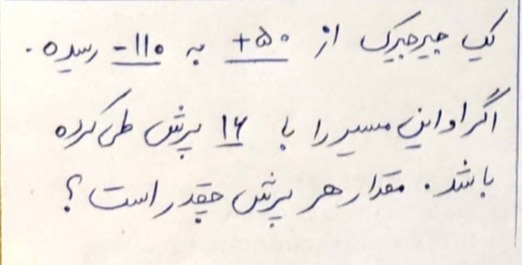 یک جیرجیرک از +۵۰ به -۱۱۰ رسیده.
اگر او این مسیر را با ۱۶ پرش طی کرده
باشد. مقدار هر پرش چقدر است؟